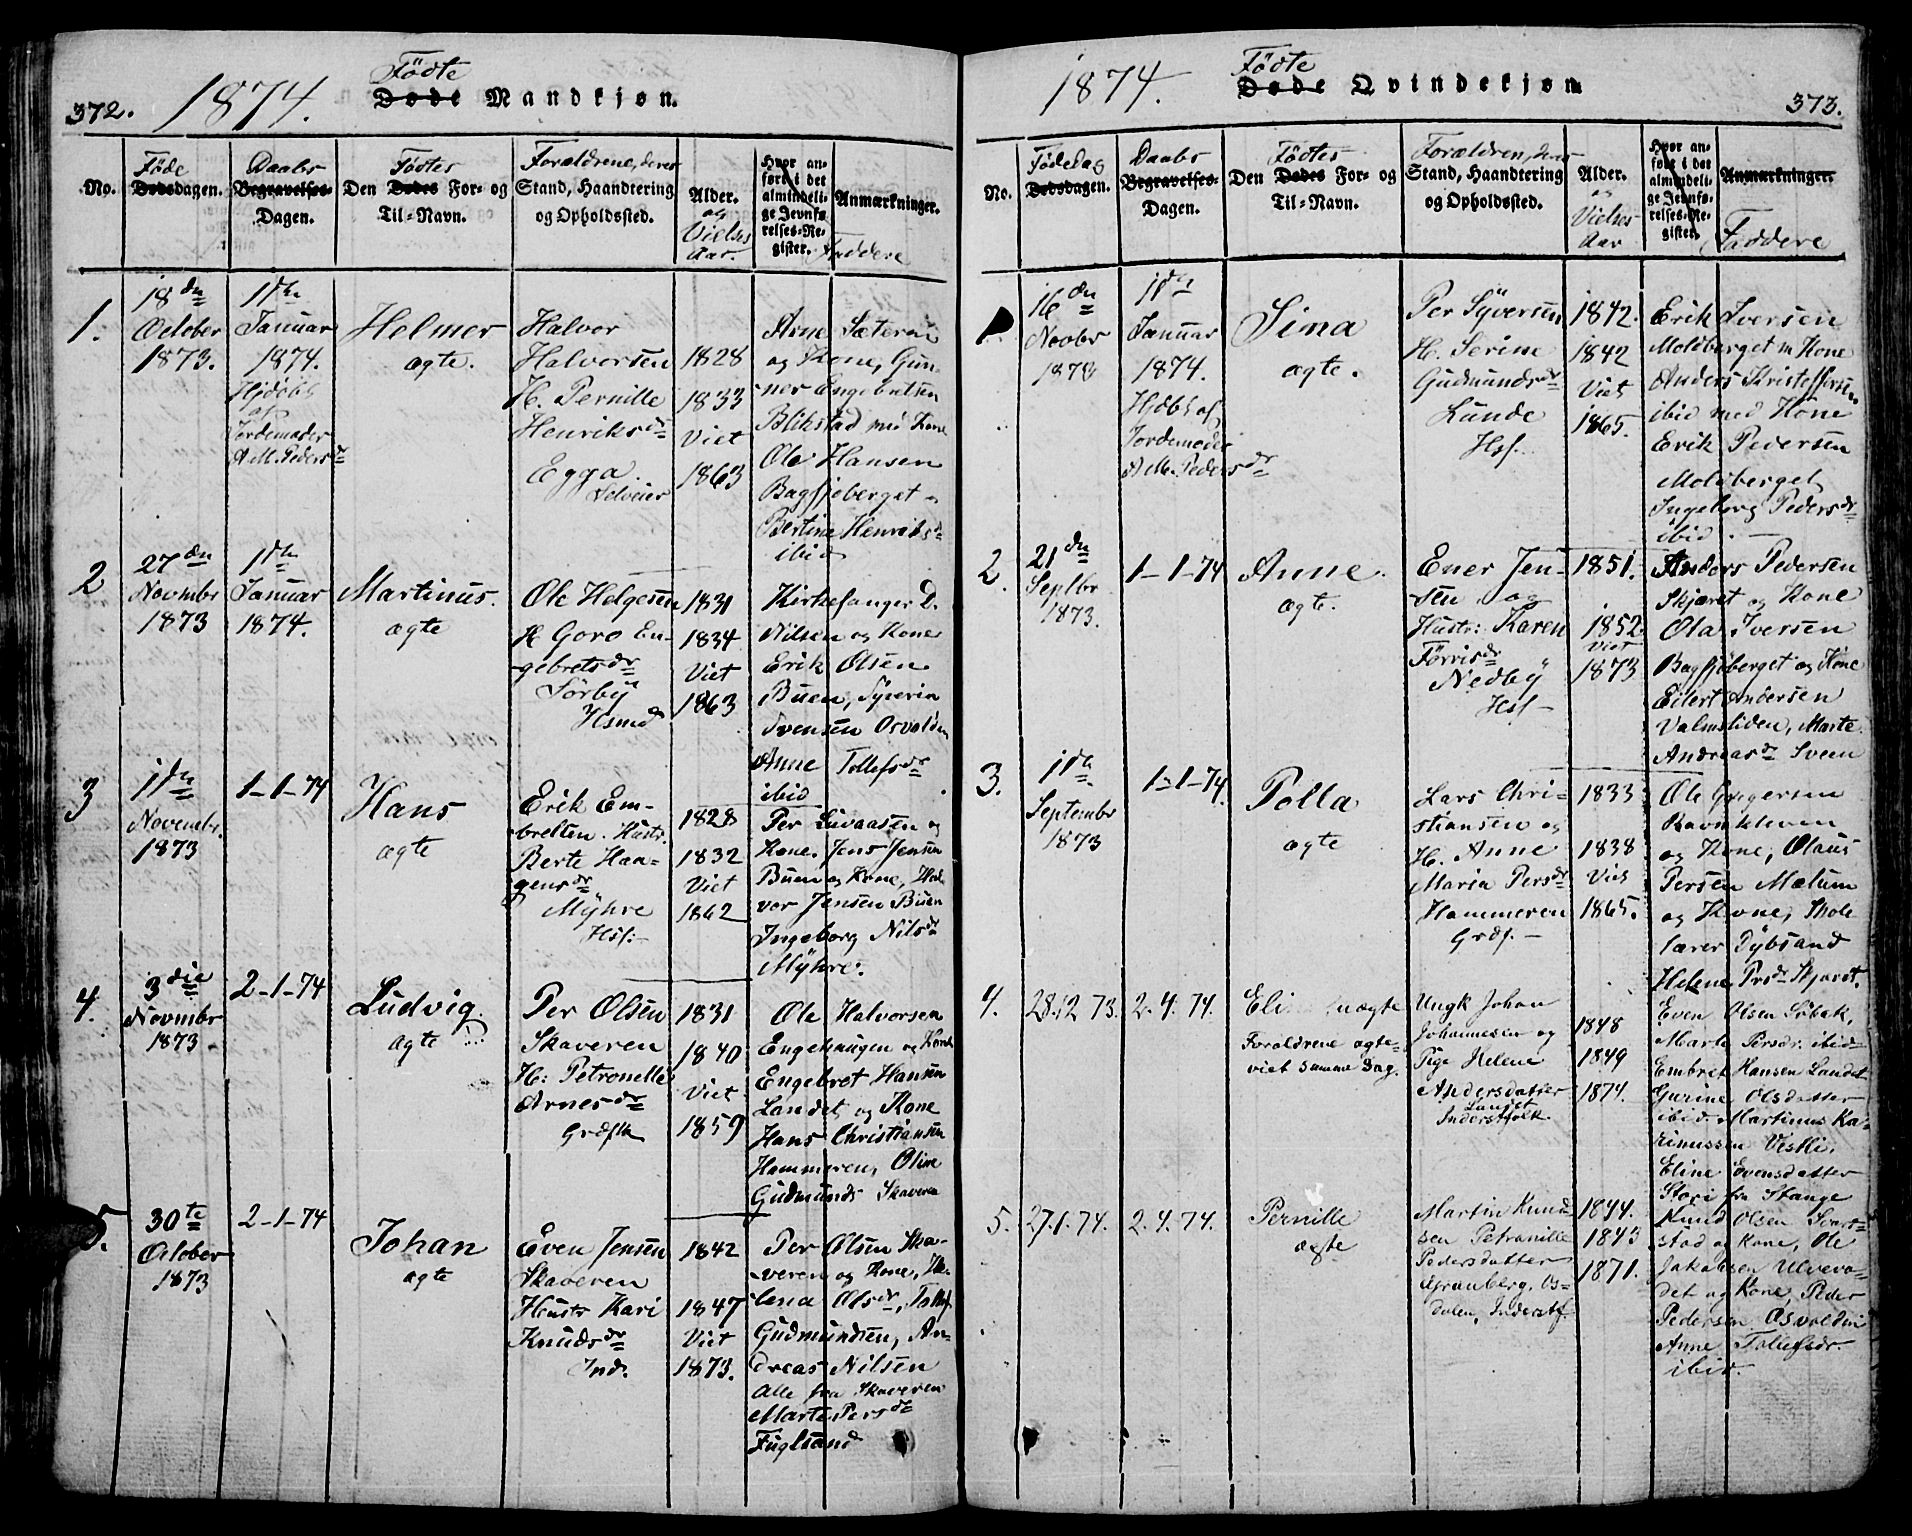 372. 1874. Fødte
Døde Mandkjøn.
No.
Føde
Dødsdagen.
Daabs
Begravelses-
Dagen.
Fødtes
Den Dødes For- og
Til-Navn.
Forældrene, deres
Stand, Haandtering
og Opholdssted.
Alder.
og
Vielses
Aar.
Hvor an-
ført i det
almindeli-
ge Jevnfø-
relses-Re-
gister.
Anmærkninger.
Faddere
1.
18dn
October
1873.
1ste
Januar
1874.
Hjdøbt
af
Jordemoder
A.M. Pedersdr
Helmer
ægte.
Halvor
Halvorsen
H. Pernille
Henriksdr
Egga
Selveier
1828
1833
Viet
1863
Arne Sæteren
og Kone, Gun-
ner Engebretsen
Blikstad med Kone
Ole Hansen
Bagfjøberget
Bertine Henriksdr
ibid
2
27dn
Novmbr
1873
1ste
Januar
1874.
Martinus.
ægte
Ole Helgesen
H. Goro En-
gebretsdr
Sørby
Hsmd
1831
1834
Viet
1863
Kirkesanger D.
Nilsen og Kone
Erik Olsen
Buen, Syverin
Svensen Osvolden
Anne Tollefsdr
ibid
3
1ste
Novembr.
1873
1-1-74
Hans
ægte
Erik Em-
bretsen. Hustr.
Berte Haa-
gensdr
Myhre
Hsf:-
1828
1832
Viet
1862
Per Livaasen og
Kone. Jens Jensen
Buen og Kone, Hal-
vor Jensen Buen
Ingeborg Nilsdr
Myhre.
4.
3die
Novmbr
1873
2-1-74
Ludvig.
ægte
Per Olsen
Skaveren
H: Petronelle
Arnesdr
Grdflk
1831
1840
Viet
1859
Ole Halvorsen
Engehaugen og Kone
Engebret Hansen
Landet og Kone
Hans Christiansen
Hammeren, Oline
Gudmunds Skaveren
5.
30te
October
1873
2-1-74
Johan
ægte
Even Jensen
Skaveren
Hustr Kari
Knudsdr
Ind.
1842
1847
Viet
1873.
Per Olsen Ska-
veren og Kone, He-
lena Olsdr, Tollef
Gudmundsen, An-
dreas Nilsen
Alle fra Skaveren
Marte Persdr
Fuglsand
1874. Fødte
Døde Qvindekjøn
373.
No.
Fødedag
Dødsdagen.
Daabs
Begravelses-
Dagen.
Fødtes
Den Dødes For- og
Til-Navn.
Forældren, deres
Stand, Haandtering
og Opholdssted.
Alder.
og
Vielses
Aar
Hvor an-
ført i det
almindeli-
ge Jevnfø-
relses-Re-
gister.
Anmærkninger.
Faddere
1.
16dn
Novbr
1873
1ste
Januar
1874.
Hjdbt af
Jordemoder
A M. Pedersdr
Sina
ægte.
Per Syversen
H. Serine
Gudmundsdr
Lunde
Hsf.
1842.
1842
Viet
1865.
Erik Iversen
Moldberget m Kone
Anders Kristoffersen
ibid med Kone
Erik Pedersen
Moldberget
Ingeborg Pedersdr
ibid.
2.
21dn
Septbr
1873.
1-1-74
Anne.
ægte.
Ener Jen-
sen og
Hustr: Karen
Førrisdr
Nedby
Hsf-
1851.
1852
Viet
1873
Anders Pedersen
Skjæret og Kone
Ola Iversen
Bagfjøberget og Kone
Eilert Andersen
Valmstiden, Marte
Andreasdr Sveen
3.
11te
Septembr
1873
1-1-74.
Polla
ægte
Lars Chri-
stiansen og
H. Anne
Maria Persdr
Hammeren
Grdf.-
1833
1838
Viet
1865.
Ole Gregersen
Ravnkleven
og Kone, Olaus
Persen Mælum
og Kone, Skole
lærer Dybsand
Helene Prsdr Skjæret.
4.
28.12 73.
2.4.74.
Eli uægte
Forældrene ægte-
viet samme Dag.
Ungk Johan
Johannesen og
Pige Helene
Andersdatter
Landet
Inderstfolk
1848
1849
1874.
Even Olsen Søbak,
Marte Persdr. ibid-
Embret Hansen Landet
Gurine Olsdatter
ibid. Martinus Ka-
rinussen Vestli.
Eline Evensdatter
Stori fra Stange
5.
27.1.74.
2.4.74.
Pernille
ægte
Martin Knud-
sen Petronille
Pedersdatter
Granberg, Os-
dalen, Inderstf.
1844.
1843
1871.
Knud Olsen Svart-
stad og Kone, Ole
Jakobsen Ulvevo-
det og Kone, Peder
Pedersen Osvolden
Anne Tollefsdr.
ibid.